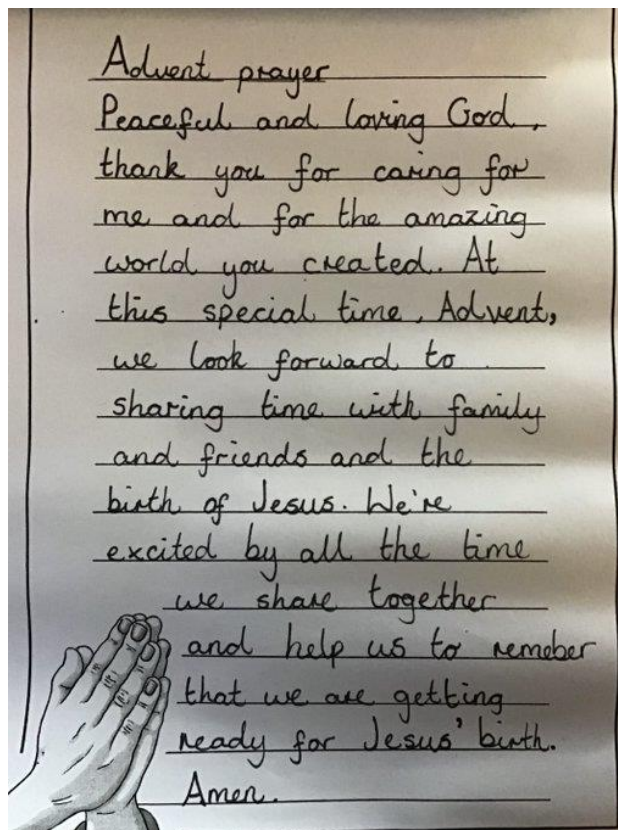 Advent prayer
Peaceful and loving God,
thank you for caring for
me and for the amazing
world you created. At
this special time, Advent,
we look forward to
sharing time with family
and friends and the
birth of Jesus. We're
excited by all the time
we share together
and help us to remeber
that we are getting
ready for Jesus' birth.
Amen.